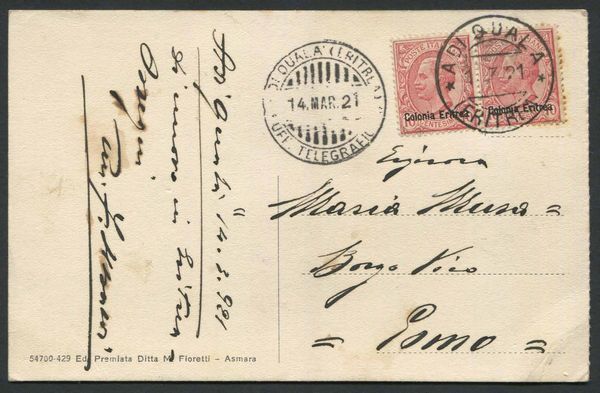 Adi Qualà 14.3.921
Omaggi
ADI QUALA (ERITREA)
14.MAR.21
UFF. TELEGRAFICO
POSTE ITALIANE
Colonia Eritrea
10 CENTESIMI
Colonia Eritrea
ADI QUALA
21
(ERITREA)
Signora
Maria Musa =
Borgo Vico
= Como =
54700-429 Ed. Premiata Ditta M. Fioretti - Asmara